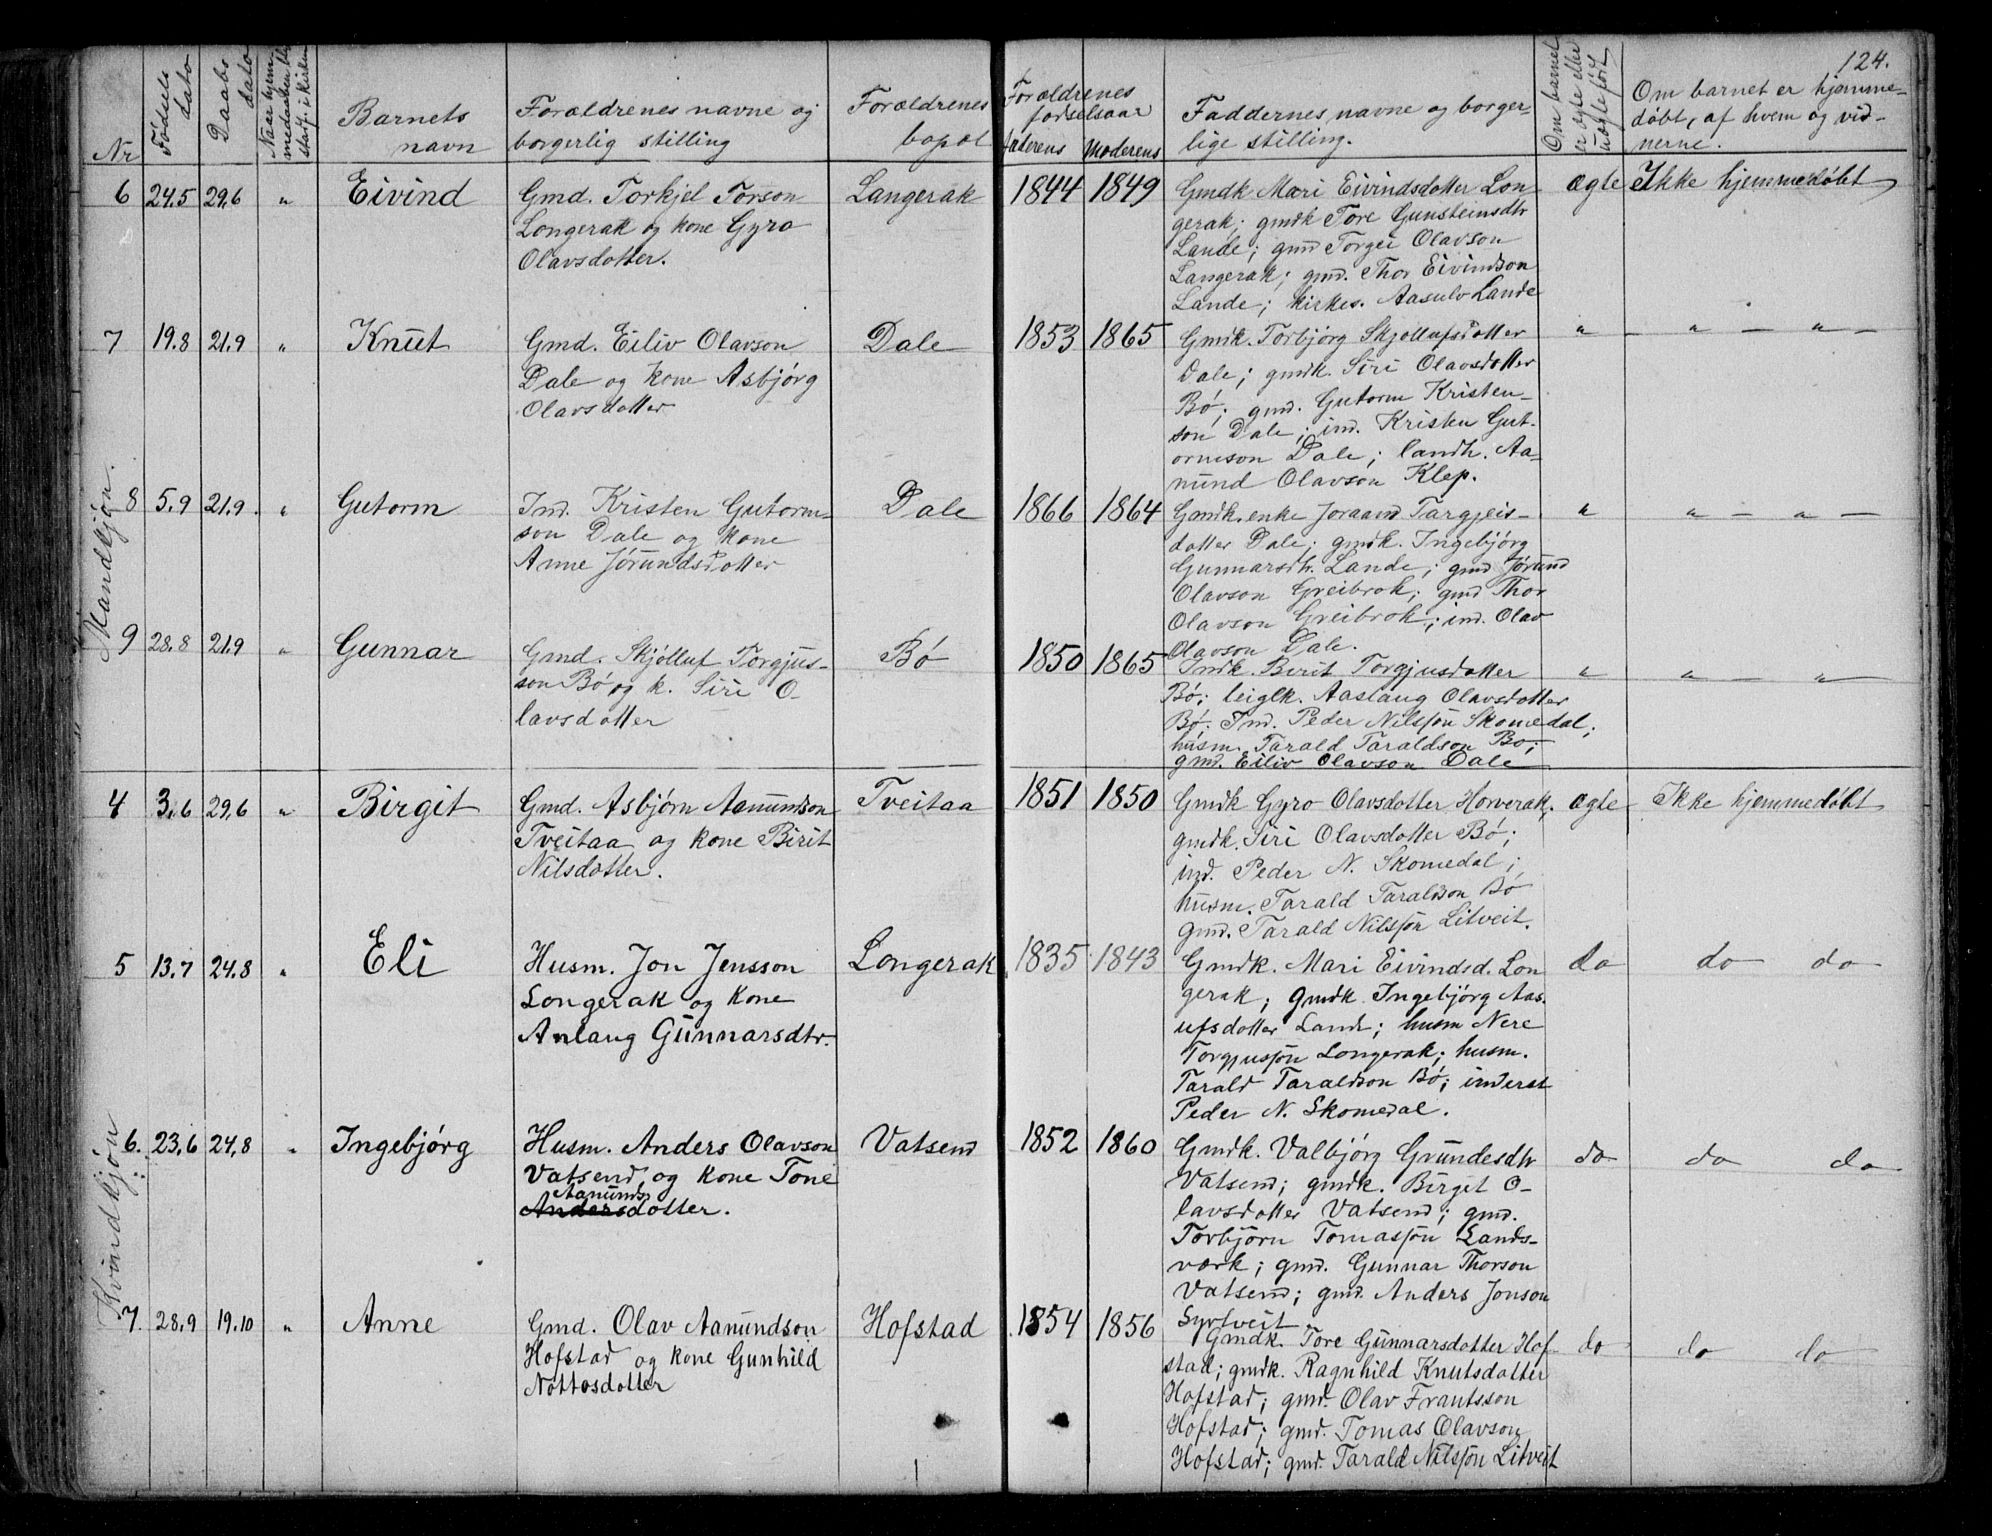 124.
Nr
Fødsels
dato
Daabs
dato
Naar hjem
medaaben bl.
stadf. i kirken
Barnets
navn
Forældrenes navne og
borgerlig stilling
Forældrenes
bopæl
Forældrenes
fødselsaar
Faderens Moderens
Faddernes navne og borger-
lige stilling.
Om barnet
er ægte eller
uægte født
Om barnet er hjemme-
døbt, af hvem og vid-
nerne.
Mandkjøn.
6 24.5 29.6 " Eivind
Gmd. Torkjel Torson
Longerak og kone Gyro
Olavsdotter.
Langerak
1844 1849
Gmdk Mari Eivindsdotter Lon
gerak; gmdk Tore Gunsteinsdtr
Lande; gmd Torgei Olavson
Langerak; gmd. Thor Eivindson
Lande; kirkes. Aasulv Lande
ægte Ikke hjemmedøbt
7 19.8 21.9 " Knut
Gmd. Eiliv Olavson
Dale og kone Asbjørg
Olavsdotter
Dale
1853 1865
Gmdk. Torbjørg Skjollufsdotter
Dale; gmdk. Siri Olavsdotter
Bø; gmd. Gutorm Kristen-
son Dale; ind. Kristen Gut-
ormson Dale; landh. Aa-
mund Olavson Klep.
" — " — " —
8 5.9 21.9. " Gutorm
Ind. Kristen Gutorm-
son Dale og kone
Anne Jørundsdotter
Dale
1866 1864
Gmdk. enke Joraand Targjeis-
dotter Dale; gmdk. Ingebjørg
Gunnarsdtr. Lande; gmd Jørund
Olavson Greibrok; gmd Thor
Olavson Greibrok; ind. Olav
Olavson Dale.
" " — " —
9 28.8 21.9 " Gunnar
Gmd. Skjølluf Torgjus-
son Bø og k. Siri O
lavsdotter
Bø
1850 1865
Indk. Birit Torgjusdotter
Bø; leiglk. Aaslaug Olavsdotter
Bø. Ind. Peder Nilsjøn Skomedal;
husm. Tarald Taraldson Bø;
gmd. Eiliv Olavson Dale
" " — " —
Kvindkjøn
4 3.6 29.6 " Birgit
Gmd. Asbjørn Aamundson
Tveitaa og kone Birit
Nilsdotter.
Tveitaa
1851 1850
Gmdk Gyro Olavsdotter Horverak;
gmdk. Siri Olavsdotter Bø;
ind. Peder N. Skomedal;
husm. Tarald Taraldson Bø
gmd. Tarald Nilsjøn Litveit.
ægte Ikke hjemmedøbt
5 13.7 24.8 " Eli
Husm. Jon Jensson
Longerak og kone
Anlaug Gunnarsdtr.
Longerak
1835 1843
Gmdk. Mari Eivindsd. Lon
gerak; gmdk Ingebjørg Aas-
ufsdotter Land; husm Nere
Torgjusjøn Longerak; husm.
Tarald Taraldson Bø; inderst
Peder N. Skomedal.
do do do
6. 23.6 24.8 " Ingebjørg
Husm. Anders Olavson
Vatsend, og kone Tone
Aamunds
Andersdotter.
Vatsend
1852 1860
Gmdk. Valbjørg Grundesdtr
Vatsend; gmdk. Birget O-
lavsdotter Vatsend; gmd.
Torbjørn Tomasjøn Lands-
værk; gmd. Gunnar Thorson
Vatsend; gmd. Anders Jonson
Syrtveit
do do do
7. 28.9 19.10 " Anne
Gmd. Olav Aamundson
Hofstad og kone Gunhild
Nottosdotter
Hofstad
1854 1856
Gmdk. Tore Gunnarsdotter Hof-
stad; gmdk. Ragnhild Knutsdotter
Hofstad; gmd. Olav Frantsson
Hofstad; gmd. Tomas Olavson
Hofstad; gmd. Tarald Nilsjøn Litveit
do do do